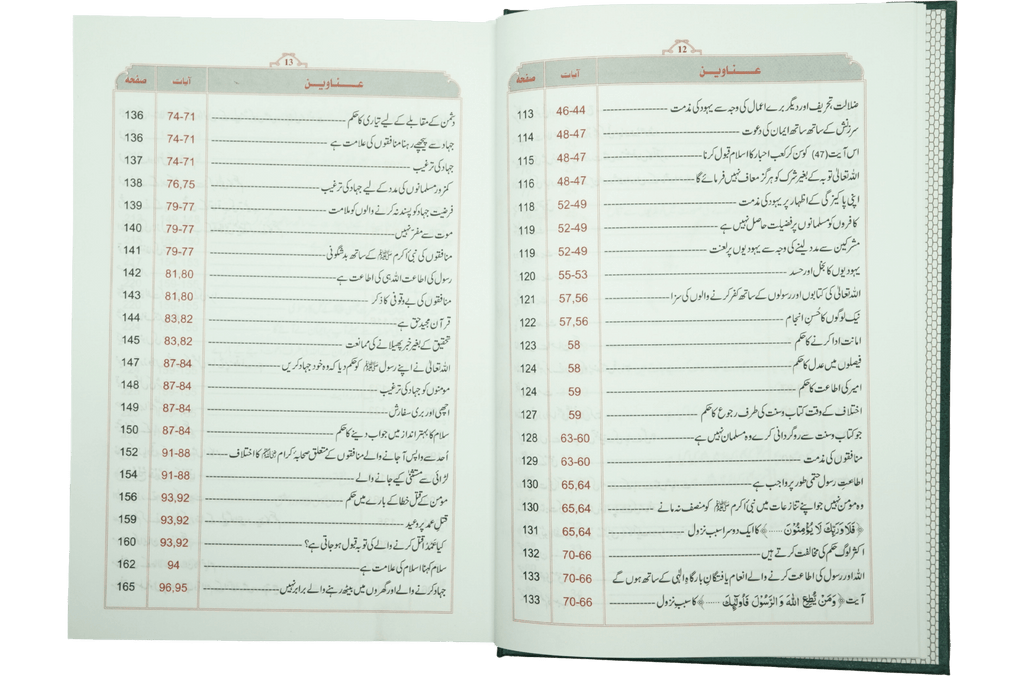 12
عناوین آیات صفحہ
ضلالت تحریف اور دیگر برے اعمال کی وجہ سے یہود کی مذمت 46-44 113
سرزنش کے ساتھ ساتھ ایمان کی دعوت 48-47 114
اس آیت (47) کو سن کر کعب احبار کا اسلام قبول کرنا 48-47 115
اللہ تعالیٰ توبہ کے بغیر شرک کو ہرگز معاف نہیں فرمائے گا 48-47 116
اپنی پاکیزگی کے اظہار پر یہود کی مذمت 52-49 118
کافروں کو مسلمانوں پر فضیلت حاصل نہیں ہے 52-49 119
مشرکین سے مدد لینے کی وجہ سے یہودیوں پر لعنت 52-49 119
یہودیوں کا بخل اور حسد 55-53 120
اللہ تعالیٰ کی کتابوں اور رسولوں کے ساتھ کفر کرنے والوں کی سزا 57,56 121
نیک لوگوں کا حسن انجام 57,56 122
امانت ادا کرنے کا حکم 58 123
فیصلوں میں عدل کا حکم 58 124
امیر کی اطاعت کا حکم 59 124
اختلاف کے وقت کتاب و سنت کی طرف رجوع کا حکم 59 127
جو کتاب و سنت سے روگردانی کرے وہ مسلمان نہیں ہے 63-60 128
منافقوں کی مذمت 63-60 129
اطاعتِ رسول حتمی طور پر واجب ہے 65,64 130
وہ مومن نہیں جو اپنے تنازعات میں نبی اکرم ﷺ کو منصف نہ مانے 65,64 130
﴿فَلَا وَرَبِّكَ لَا يُؤْمِنُوْنَ ......﴾ کا ایک دوسرا سبب نزول 65,64 131
اکثر لوگ حکم کی مخالفت کرتے ہیں 70-66 132
اللہ اور رسول کی اطاعت کرنے والے انعام یافتگانِ بارگاہ الٰہی کے ساتھ ہوں گے 70-66 133
آیت ﴿وَمَنْ يُّطِعِ اللّٰهَ وَالرَّسُوْلَ فَاُولٰٓئِكَ ......﴾ کا سبب نزول 70-66 133
13
عناوین آیات صفحہ
دشمن کے مقابلے کے لیے تیاری کا حکم 74-71 136
جہاد سے پیچھے رہنا منافقوں کی علامت ہے 74-71 136
جہاد کی ترغیب 74-71 137
کمزور مسلمانوں کی مدد کے لیے جہاد کی ترغیب 76,75 138
فرضیت جہاد کو پسند نہ کرنے والوں کو ملامت 79-77 139
موت سے مفر نہیں 79-77 140
منافقوں کی نبی اکرم ﷺ کے ساتھ بدشگونی 79-77 141
رسول کی اطاعت اللہ ہی کی اطاعت ہے 81,80 142
منافقوں کی بے وقوفی کا ذکر 81,80 143
قرآن مجید حق ہے 83,82 144
تحقیق کے بغیر خبر پھیلانے کی ممانعت 83,82 145
اللہ تعالیٰ نے اپنے رسول ﷺ کو حکم دیا کہ وہ خود جہاد کریں 87-84 147
مومنوں کو جہاد کی ترغیب 87-84 148
اچھی اور بری سفارش 87-84 149
سلام کا بہتر انداز میں جواب دینے کا حکم 87-84 150
اُحد سے واپس آ جانے والے منافقوں کے متعلق صحابہ کرام کا اختلاف 91-88 152
لڑائی سے مستثنیٰ کیے جانے والے 91-88 154
مومن کے قتل خطا کے بارے میں حکم 93,92 156
قتل عمد پر وعید 93,92 159
کیا عمداً قتل کرنے والے کی توبہ قبول ہو جاتی ہے؟ 93,92 160
سلام کہنا اسلام کی علامت ہے 94 162
جہاد کرنے والے اور گھروں میں بیٹھ رہنے والے برابر نہیں 96,95 165